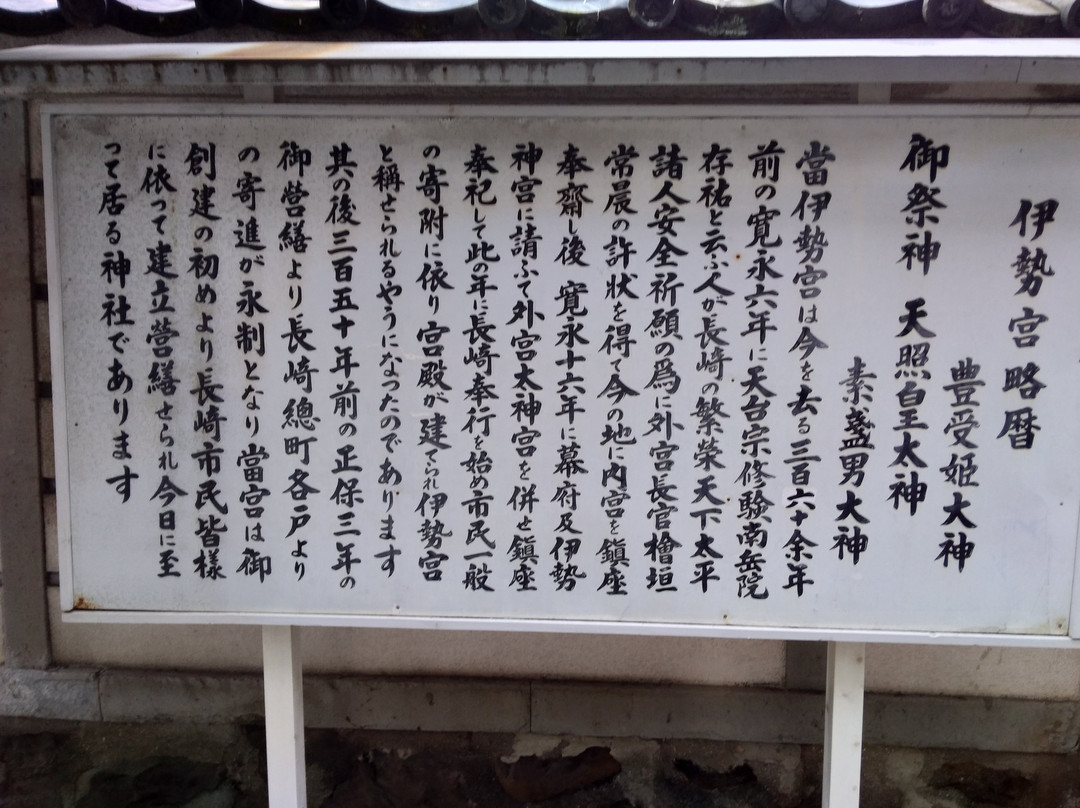 伊勢宮略暦
豊受姫大神
御祭神 天照皇太神
素盞男大神
當伊勢宮は今を去る三百六十余年
前の寛永六年に天台宗修験南岳院
存祐と云ふ人が長崎の繁榮天下太平
諸人安全祈願の爲に外宮長官檜垣
常晨の許狀を得て今の地に内宮を鎭座
奉齋し後 寛永十六年に幕府及伊勢
神宮に請ふて外宮太神宮を併せ鎭座
奉祀して此の年に長崎奉行を始め市民一般
の寄附に依り宮殿が建てられ伊勢宮
と稱せられるやうになつたのであります
其の後三百五十年前の正保三年の
御營繕より長崎總町各戸より
の寄進が永制となり當宮は御
創建の初めより長崎市民皆様
に依って建立營繕せられ今日に至
って居る神社であります